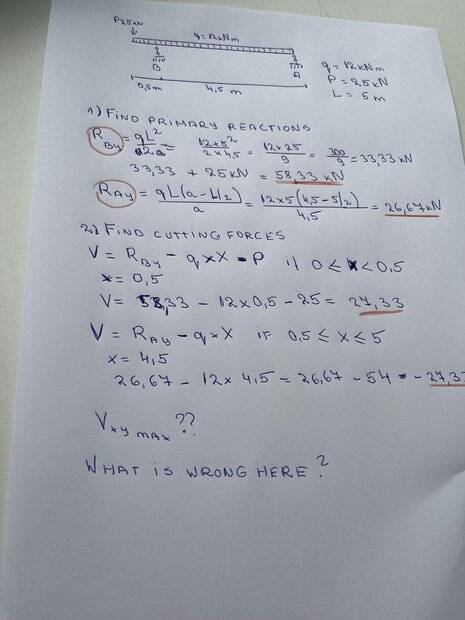 P25kN
q=12kNm
B
A
0,5m 4,5 m
q = 12kNm
P = 25kN
L = 5m
1) FIND PRIMARY REACTIONS
R_By = qL²/2a = 12x5²/2x4,5 = 12x25/9 = 300/9 = 33,33 kN
33,33 + 25kN = 58,33 kN
R_Ay = qL(a-L/2)/a = 12x5(4,5-5/2)/4,5 = 26,67kN
2) FIND CUTTING FORCES
V = R_By - q x X - P if 0 ≤ x < 0,5
x = 0,5
V = 58,33 - 12x0,5 - 25 = 27,33
V = R_Ay - q x X IF 0,5 ≤ x ≤ 5
x = 4,5
26,67 - 12x 4,5 = 26,67 - 54 = -27,3
V_xy MAX ??
WHAT IS WRONG HERE?